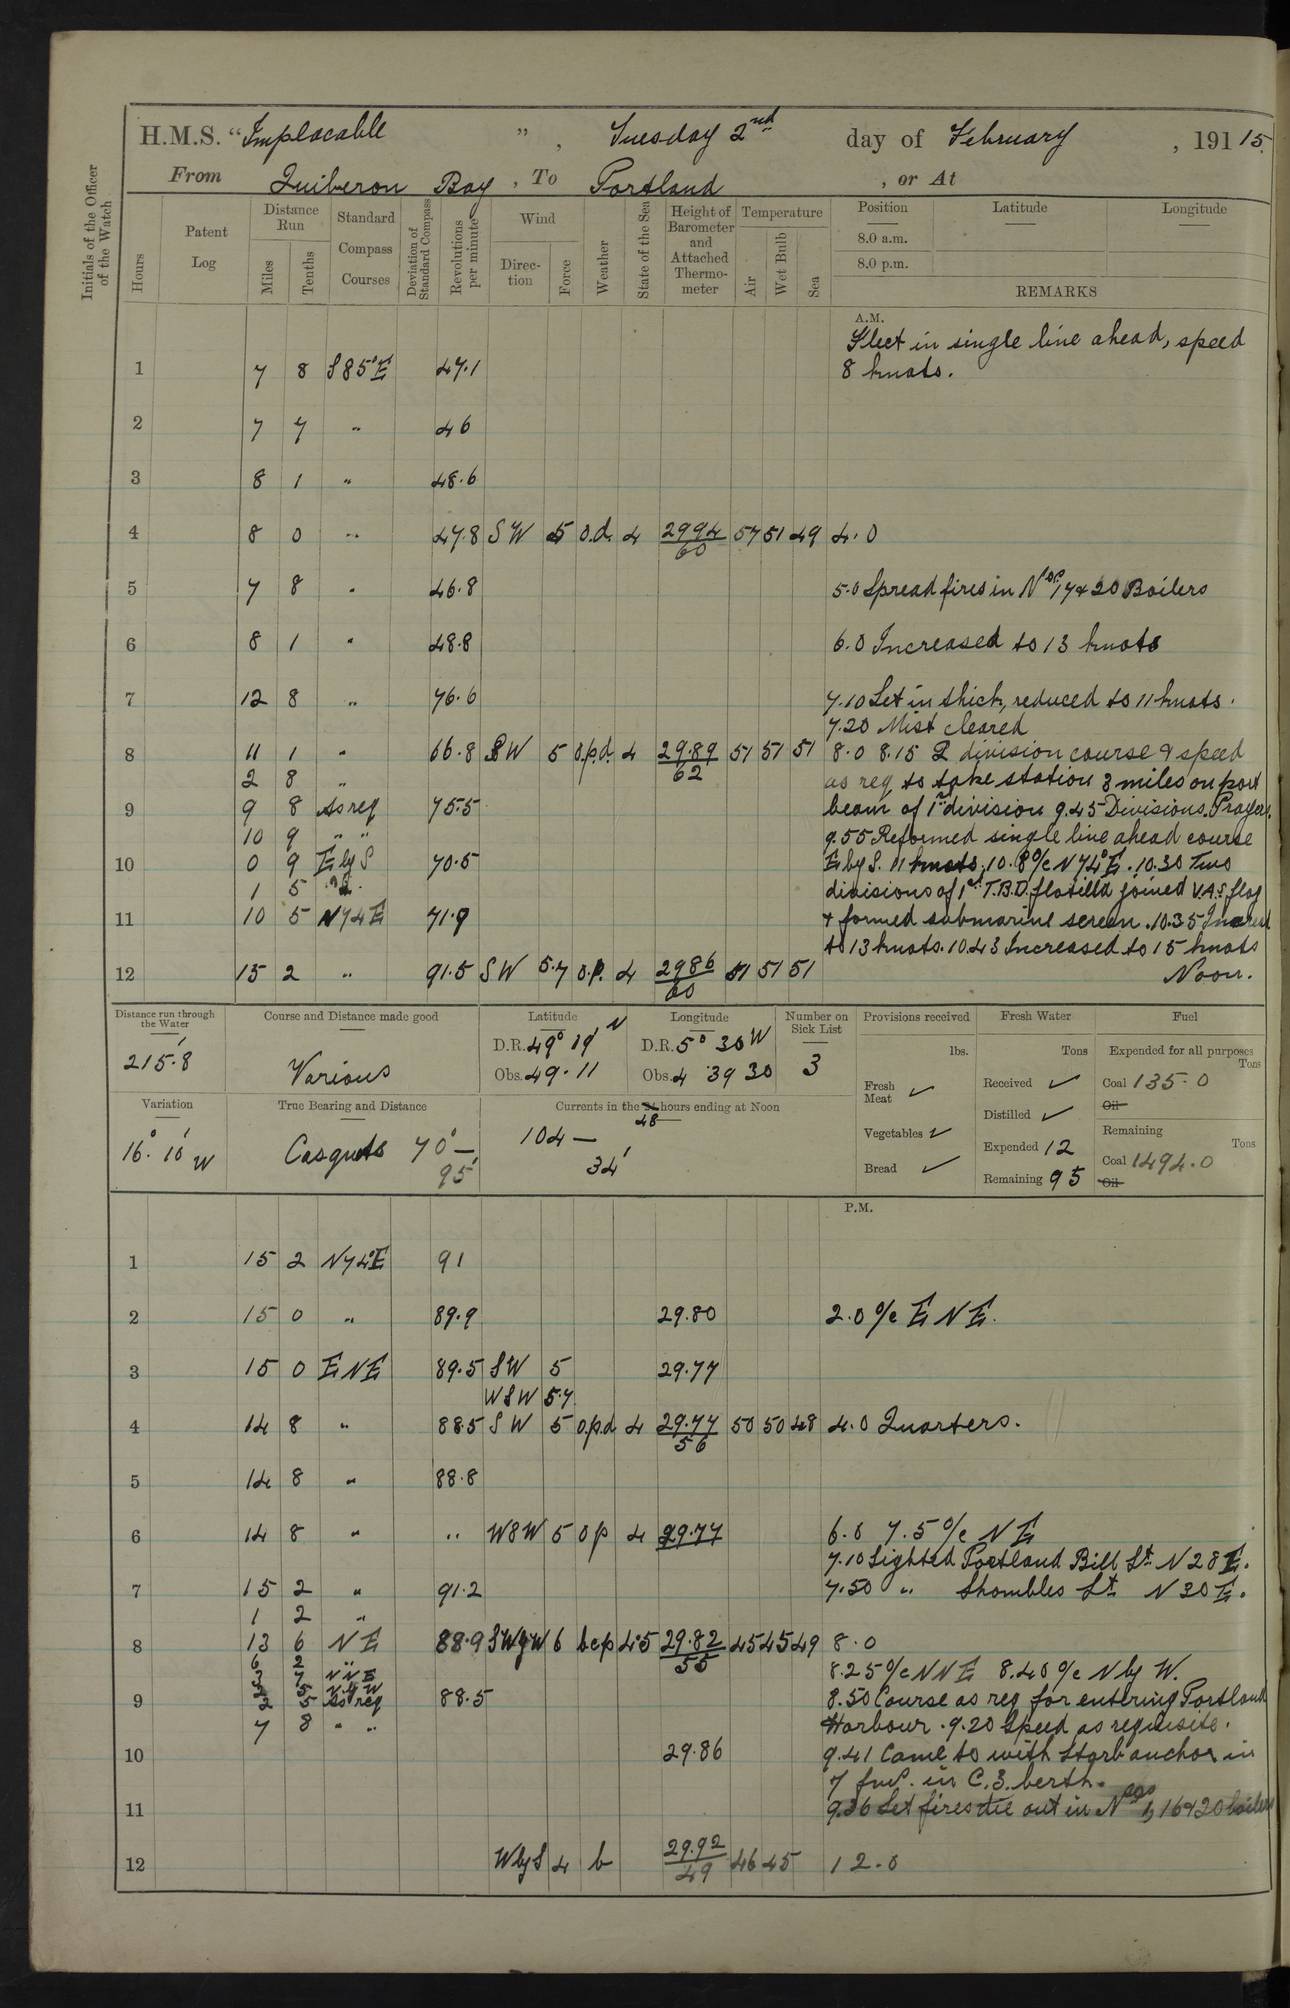 H.M.S. "Implacable", Tuesday 2nd day of February, 191 15.
From Quiberon Bay, To Portland, or At
Initials of the Officer of the Watch
Hours
Patent Log
Distance Run
Miles
Tenths
Standard Compass Courses
Deviation of Standard Compass
Revolutions per minute
Wind
Direction
Force
Weather
State of the Sea
Height of Barometer and Attached Thermometer
Temperature
Air
Wet Bulb
Sea
Position Latitude Longitude
8.0 a.m.
8.0 p.m.
REMARKS
A.M.
Fleet in single line ahead, speed
1 7 8 S85°E 47.1 8 knots.
2 7 7 " 46
3 8 1 " 48.6
4 8 0 " 47.8 SW 5 o.d. 4 2994/60 57 51 49 4.0
5 7 8 " 46.8 5.0 Spread fires in Nos 17 & 20 Boilers
6 8 1 " 48.8 6.0 Increased to 13 knots
7 12 8 " 76.6 7.10 Set in thick, reduced to 11 knots.
7.20 Mist cleared
8 11 1 " 66.8 SW 5 o.p.d. 4 29.89/62 51 51 51 8.0 8.15 2 division course & speed
2 8 " as req to take station 3 miles on port
9 9 8 As req 75.5 beam of 1st division 9.45 Divisions. Prayers.
10 9 " " 9.55 Reformed single line ahead course
10 0 9 E by S 70.5 E by S. 11 knots. 10.8 o/c N74°E. 10.30 Two
1 5 divisions of 1st T.B.D. flotilla joined V.A.s flag
11 10 5 N74E 71.9 & formed submarine screen. 10.35 Incread
to 13 knots. 10.43 Increased to 15 knots
12 15 2 " 91.5 SW 5.7 o.p. 4 2986/60 51 51 51 Noon.
Distance run through the Water
215.8
Course and Distance made good
Various
Latitude
D.R. 49° 19' N
Obs. 49.11
Longitude
D.R. 5° 30 W
Obs. 4 39 30
Number on Sick List
3
Provisions received
lbs.
Fresh Meat ✓
Vegetables ✓
Bread ✓
Fresh Water
Tons
Received ✓
Distilled ✓
Expended 12
Remaining 95
Fuel
Expended for all purposes
Tons
Coal 135.0
Oil
Remaining
Tons
Coal 1494.0
Oil
Variation
16° 10' W
True Bearing and Distance
Casquets 70° — 95'
Currents in the 24 48 hours ending at Noon
104 —
34'
P.M.
1 15 2 N74°E 91
2 15 0 " 89.9 29.80 2.0 o/c E N E.
3 15 0 ENE 89.5 SW 5 29.77
WSW 5.7
4 14 8 " 88.5 SW 5 o.p.d 4 29.77/56 50 50 48 4.0 Quarters.
5 14 8 " 88.8
6 14 8 " " WSW 5 o p 4 29.77 6.0 7.5 o/c N E
7.10 Sighted Portland Bill Lt. N28E.
7 15 2 " 91.2 7.50 " Shambles Lt N30E.
1 2 "
8 13 6 NE 88.9 SWgW 6 bcp 4.5 29.82/55 45 45 49 8.0
6 2 "
3 7 NNE 8.25 o/c NNE 8.40 o/c N by W.
5 N by W
9 2 5 As req 88.5 8.50 Course as req for entering Portland
7 8 " " Harbour. 9.20 Speed as requisite.
10 29.86 9.41 Came to with starb anchor in
7 fms. in C.3. berth.
11 9.36 Let fires die out in Nos 1, 16 & 20 boilers
12 W by S 4 b 29.92/49 46 45 12.0